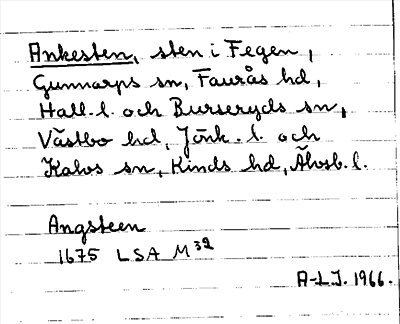 Ankesten, sten i Fegen,
Gunnarps sn, Faurås hd,
Hall. l. och Burseryds sn,
Västbo hd, Jönk. l. och
Kalvs sn, Kinds hd, Älvsb. l.
Angsteen
1675 LSA M 32
A-LJ. 1966.